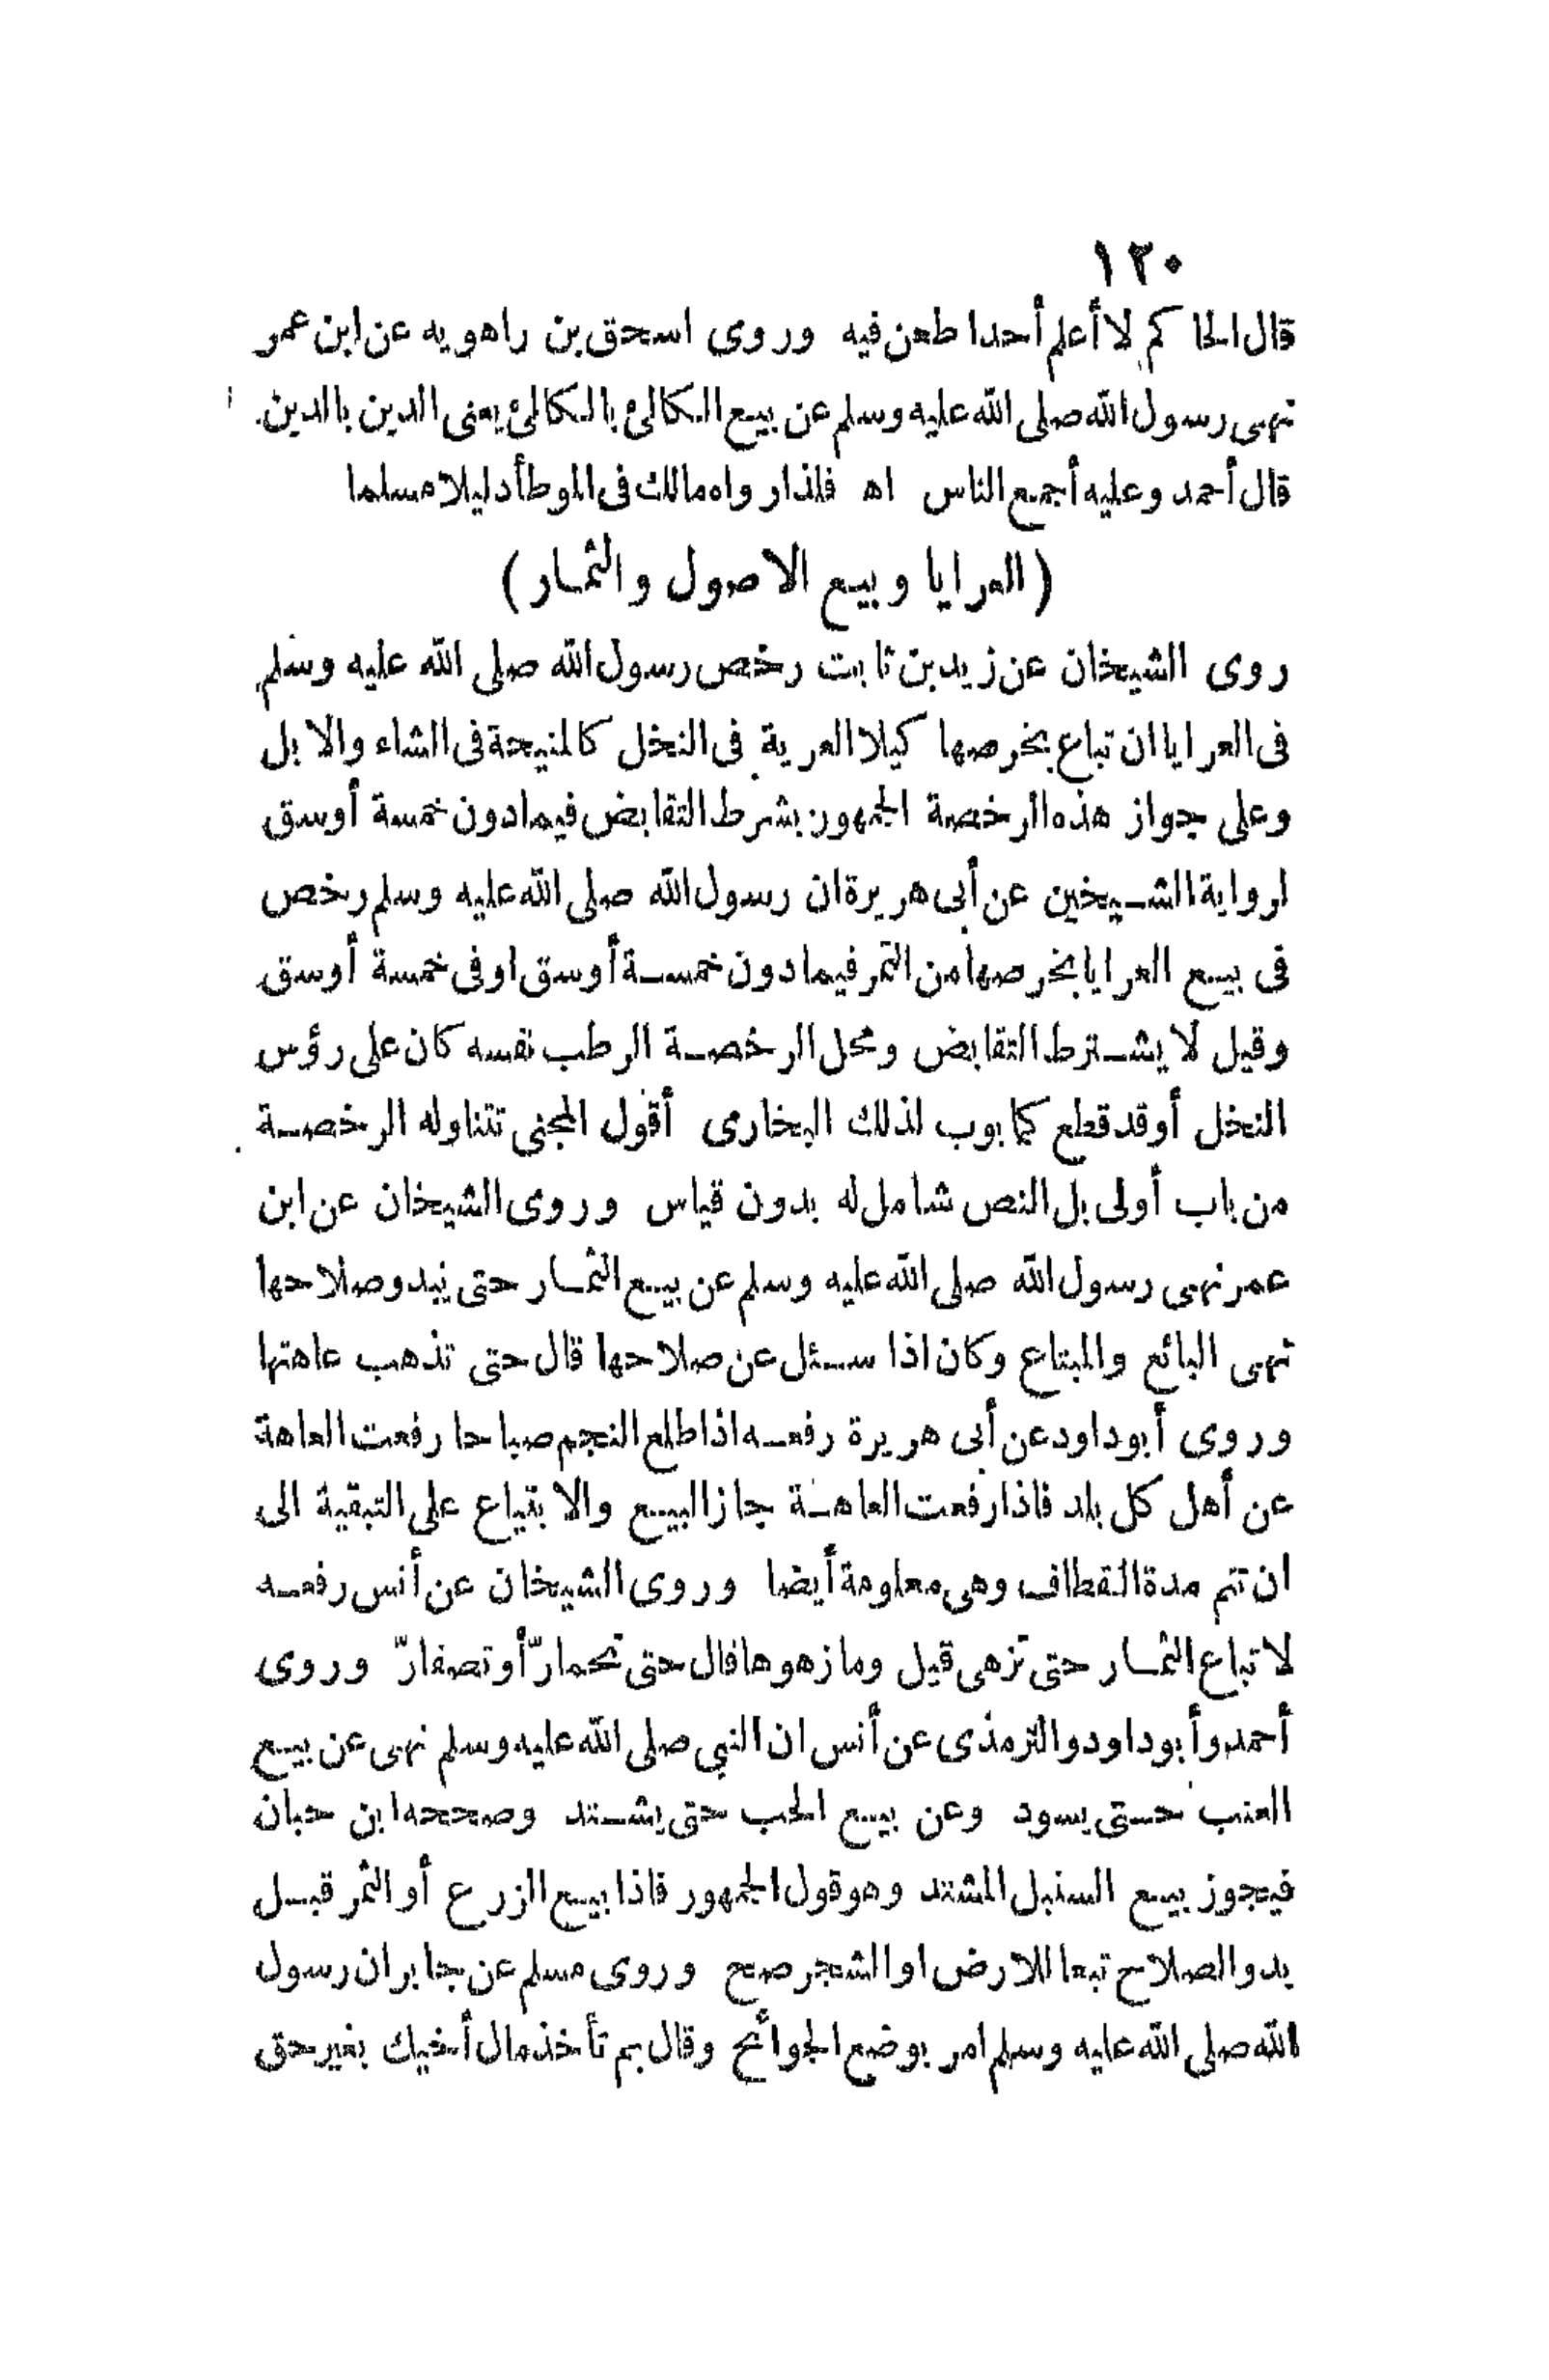 ١٣٠
قال الحاكم لا أعلم أحدا طعن فيه وروى اسحق بن راهويه عن ابن عمر
نهى رسول الله صلى الله عليه وسلم عن بيع الكالئ بالكالئ يعنى الدين بالدين
قال أحمد وعليه أجمع الناس اه فلذا رواه مالك فى الموطأ دليلا مسلما
(العرايا وبيع الاصول والثمار)
روى الشيخان عن زيد بن ثابت رخص رسول الله صلى الله عليه وسلم
فى العرايا ان تباع بخرصها كيلا العرية فى النخل كالمنيحة فى الشاء والابل
وعلى جواز هذه الرخصة الجمهور بشرط التقابض فيما دون خمسة أوسق
لرواية الشيخين عن أبى هريرة ان رسول الله صلى الله عليه وسلم رخص
فى بيع العرايا بخرصها من التمر فيما دون خمسة أوسق او فى خمسة أوسق
وقيل لا يشترط التقابض ومحل الرخصة الرطب نفسه كان على رؤس
النخل أو قد قطع كما بوب لذلك البخارى أقول المجنى تتناوله الرخصة
من باب أولى بل النص شامل له بدون قياس وروى الشيخان عن ابن
عمر نهى رسول الله صلى الله عليه وسلم عن بيع الثمار حتى يبدو صلاحها
نهى البائع والمبتاع وكان اذا سئل عن صلاحها قال حتى تذهب عاهتها
وروى أبو داود عن أبى هريرة رفعه اذا طلع النجم صباحا رفعت العاهة
عن أهل كل بلد فاذا رفعت العاهة جاز البيع والابتياع على التبقية الى
ان تتم مدة القطاف وهى معلومة أيضا وروى الشيخان عن أنس رفعه
لا تباع الثمار حتى تزهى قيل وما زهوها قال حتى تحمارّ أو تصفارّ وروى
أحمد وأبو داود والترمذى عن أنس ان النبي صلى الله عليه وسلم نهى عن بيع
العنب حتى يسود وعن بيع الحب حتى يشتد وصححه ابن حبان
فيجوز بيع السنبل المشتد وهو قول الجمهور فاذا بيع الزرع أو الثمر قبل
بدو الصلاح تبعا للارض او الشجر صح وروى مسلم عن جابر ان رسول
الله صلى الله عليه وسلم امر بوضع الجوائح وقال بم تأخذ مال أخيك بغير حق